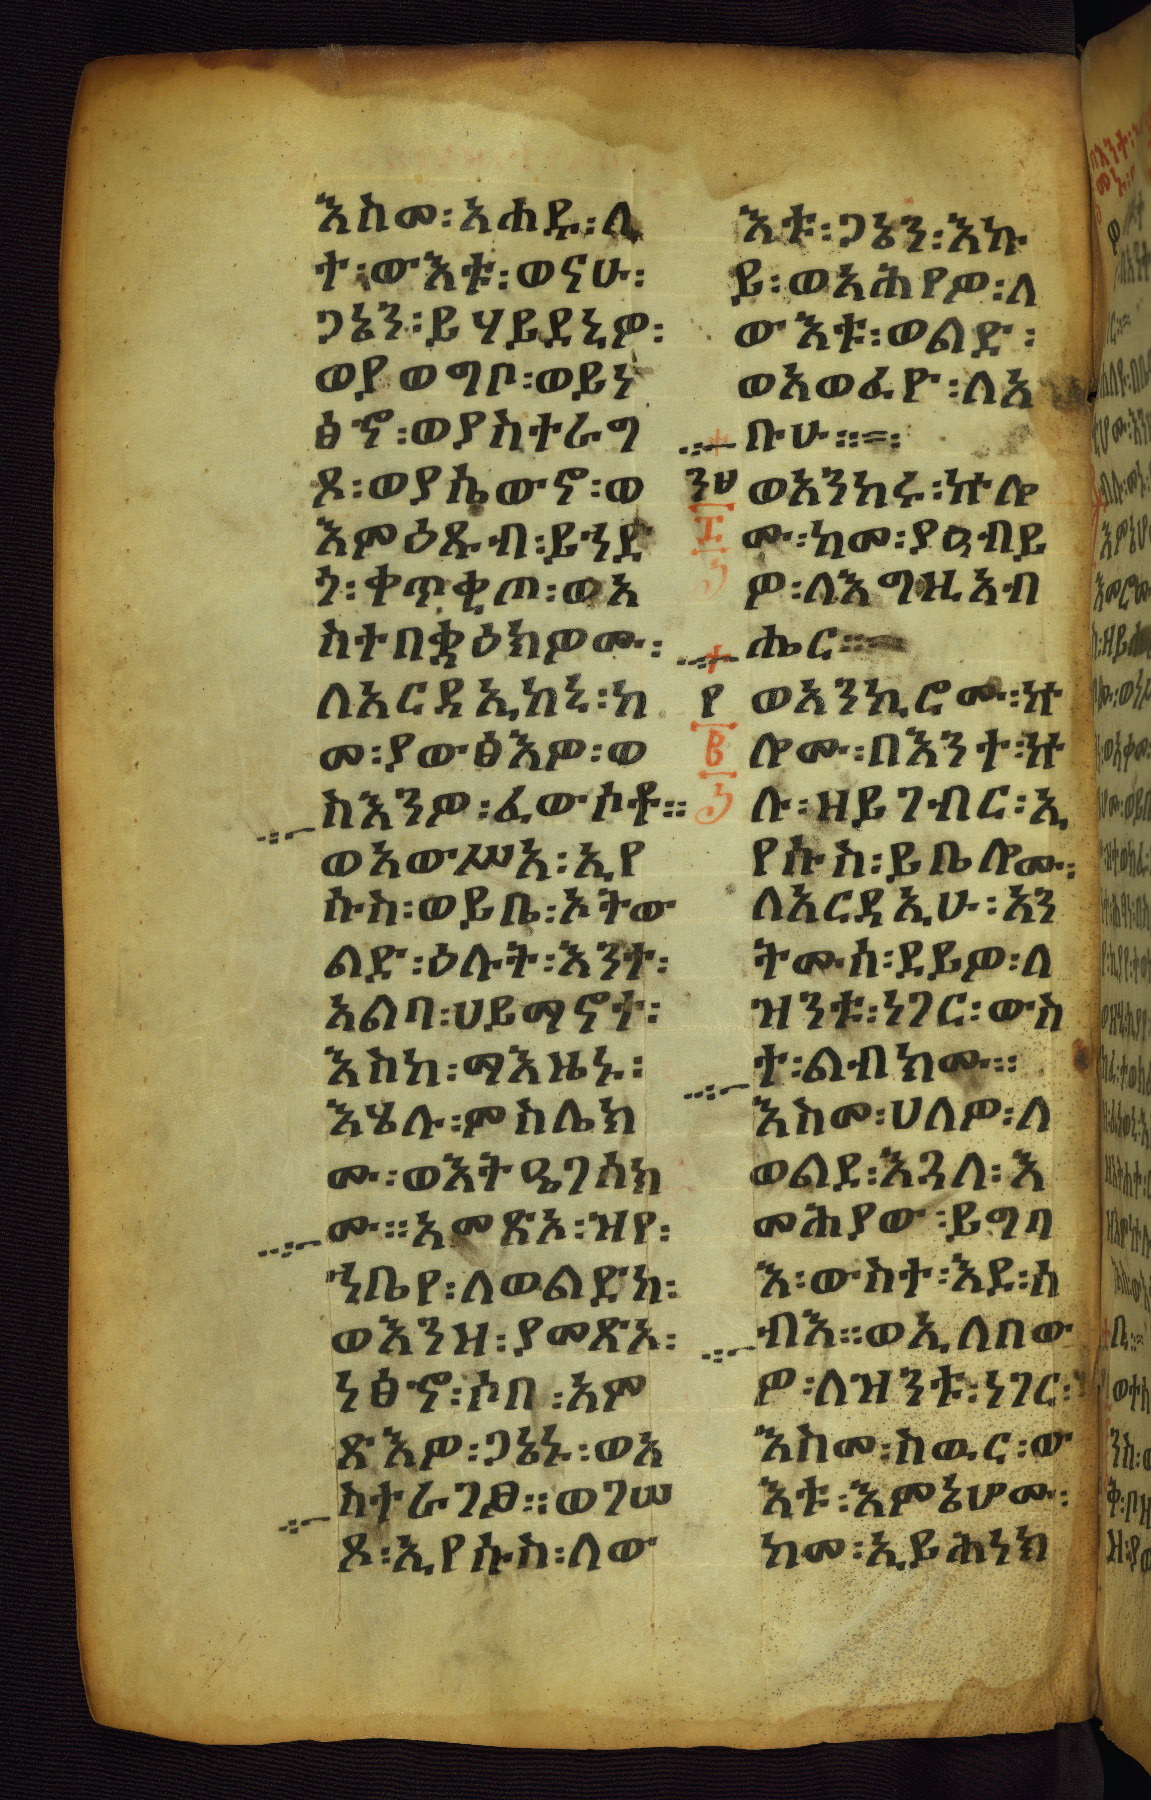 እስመ፡አሐዱ፡ሊ
ተ፡ውእቱ፡ወናሁ፡
ጋኔን፡ይሄይደኒዮ፡
ወያወግቦ፡ወይነ
ፅኆ፡ወያስተራግ
ጾ፡ወያኬውኖ፡ወ
እምዕጹብ፡ይኀደ
ጎ፡ቀጥቂጦ፡ወአ
ስተበቋዕክዎሙ፡
ለአርዳኢከኒ፡ከ
መ፡ያውፅእዎ፡ወ
ስእንዎ፡ፈውሶቶ።
ወአውሥአ፡ኢየ
ሱስ፡ወይቤ፡ኦትው
ልድ፡ዕሉት፡እንተ፡
አልባ፡ሀይማኖተ፡
እስከ፡ማእዜኑ፡
እሄሉ፡ምስሌክ
ሙ፡ወእትዔገሰክ
ሙ።አመጽኦ፡ዝየ፡
ኀቤየ፡ለወልድከ፡
ወእንዘ፡ያመጽኦ፡
ነፅኆ፡ሶበ፡አም
ጽእዎ፡ጋኔኑ፡ወአ
ስተራገፆ።ወገሠ
ጾ፡ኢየሱስ፡ለው
እቱ፡ጋኔን፡እኩ
ይ፡ወአሕየዎ፡ለ
ውእቱ፡ወልድ፡
ወአወፈዮ፡ለአ
ቡሁ።
ወአንከሩ፡ኵሎ
ሙ፡ከመ፡ያዐብይ
ዎ፡ለእግዚአብ
ሔር።
ወአንኪሮሙ፡ኵ
ሎሙ፡በእንተ፡ኵ
ሉ፡ዘይገብር፡ኢ
የሱስ፡ይቤሎሙ፡
ለአርዳኢሁ፡አን
ትሙሰ፡ደይዎ፡ለ
ዝንቱ፡ነገር፡ውስ
ተ፡ልብክሙ።
እስመ፡ሀለዎ፡ለ
ወልደ፡እጓለ፡እ
መሕያው፡ይግባ
እ፡ውስተ፡እደ፡ሰ
ብእ።ወኢለበው
ዎ፡ለዝንቱ፡ነገር፡
እስመ፡ስዉር፡ው
እቱ፡እምኔሆሙ፡
ከመ፡ኢይሕነክ